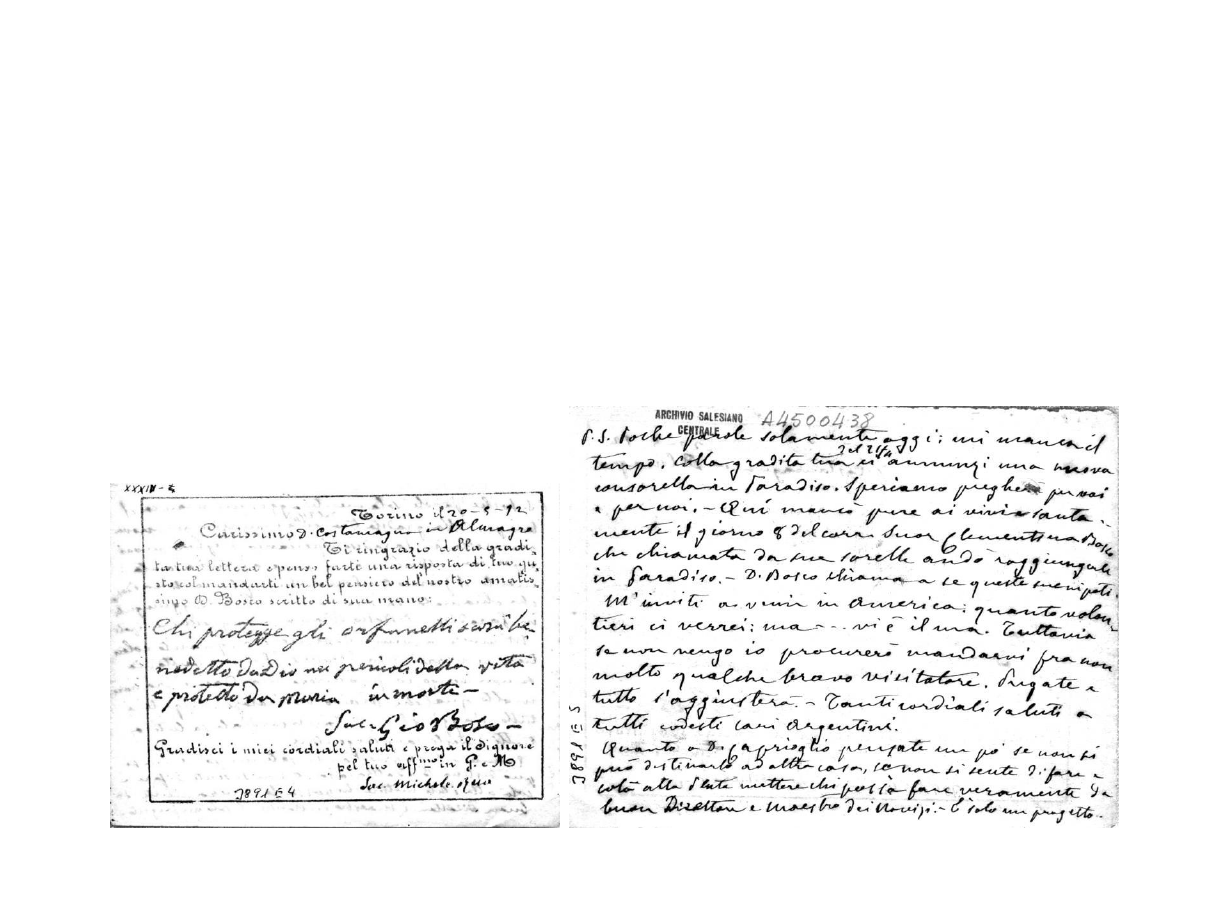 XXXIV-3
Torino il 20-5-92
Carissimo D. Costamagna in Almagro
Ti ringrazio della gradi-
ta tua lettera e penso farti una risposta di tuo gu-
sto col mandarti un bel pensiero del nostro amatis-
simo D. Bosco scritto di sua mano:
Chi protegge gli orfanelli sarà be-
nedetto da Dio nei pericoli della vita
e protetto da Maria in morte -
Sac. Gio Bosco -
Gradisci i miei cordiali saluti e prega il Signore
pel tuo aff.mo in G. e M.
Sac. Michele Rua
3891 E 4
ARCHIVIO SALESIANO
CENTRALE
A4500438
P.S. Poche parole solamente oggi; mi manca il
tempo. Colla gradita tua ci annunzi una nuova
consorella in Paradiso. Speriamo pregherà per voi
e per noi. - Qui mancò pure ai vivi santa-
mente il giorno 8 del corr. Suor Clementina Bosco
che chiamata da sua sorella andò raggiungerla
in Paradiso. - D. Bosco chiama a se queste sue nipoti
M'inviti a venir in America: quanto volen-
tieri ci verrei: ma - .. vi è il ma. Tuttavia
se non vengo io procurerò mandarvi fra non
molto qualche bravo visitatore. Pregate e
tutto s'aggiusterà. - Tanti cordiali saluti a
tutti codesti cari Argentini.
Quanto a D. Caprioglio pensate un po' se non si
può destinarlo ad altra casa, se non si sente di fare e
colà alla Plata mettere chi possa fare veramente da
buon Direttore e Maestro dei Novizi. - È solo un progetto.
3891 E 5